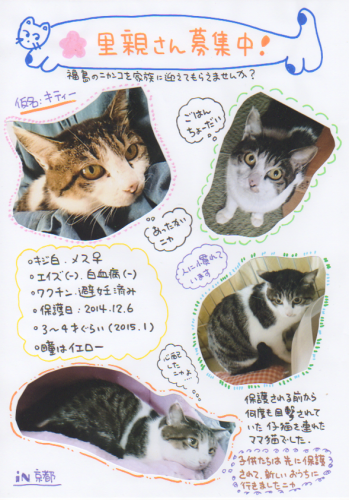 里親さん募集中!
福島のニャンコを家族に迎えてもらえませんか?
仮名：キティー
ごはん
ちょーだい
あったかい
ニャ
人に慣れて
います
○キジ白．メス♀
○エイズ(-)．白血病(-)
○ワクチン．避妊済み
○保護日：2014.12.6
○3〜4才ぐらい(2015.1)
○瞳はイエロー
心配
したニャ
よ…
保護される前から
何度も目撃されて
いた仔猫を連れた
ママ猫でした。
子供たちは先に保護
されて、新しいおうちに
行きましたニャ
iN 京都